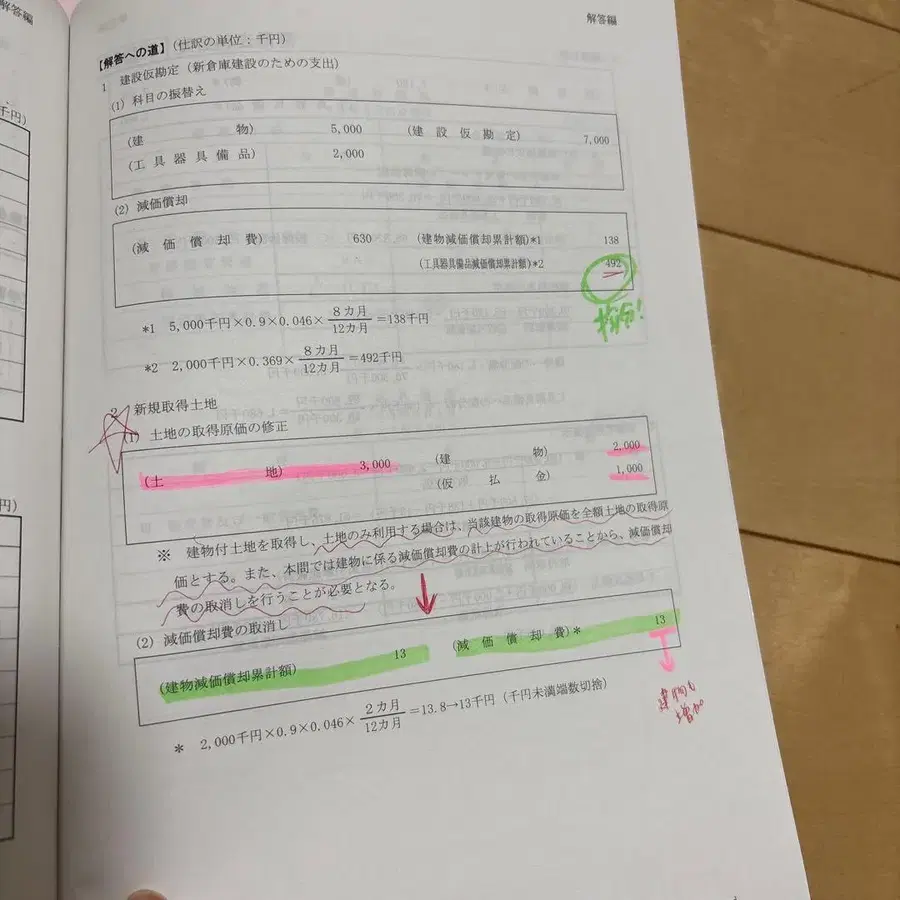 解答編
解答編
千円)
円)
【解答への道】(仕訳の単位：千円)
1 建設仮勘定(新倉庫建設のための支出)
(1) 科目の振替え
(建 物) 5,000 (建 設 仮 勘 定) 7,000
(工 具 器 具 備 品) 2,000
(2) 減価償却
(減 価 償 却 費) 630 (建物減価償却累計額)*1 138
(工具器具備品減価償却累計額)*2 492
*1 5,000千円×0.9×0.046×8カ月/12カ月=138千円
*2 2,000千円×0.369×8カ月/12カ月=492千円
2 新規取得土地
(1) 土地の取得原価の修正
(土 地) 3,000 (建 物) 2,000
(仮 払 金) 1,000
※ 建物付土地を取得し、土地のみ利用する場合は、当該建物の取得原価を全額土地の取得原
価とする。また、本問では建物に係る減価償却費の計上が行われていることから、減価償却
費の取消しを行うことが必要となる。
(2) 減価償却費の取消し
(建物減価償却累計額) 13 (減 価 償 却 費)* 13
* 2,000千円×0.9×0.046×2カ月/12カ月=13.8→13千円(千円未満端数切捨)
建物も
増加